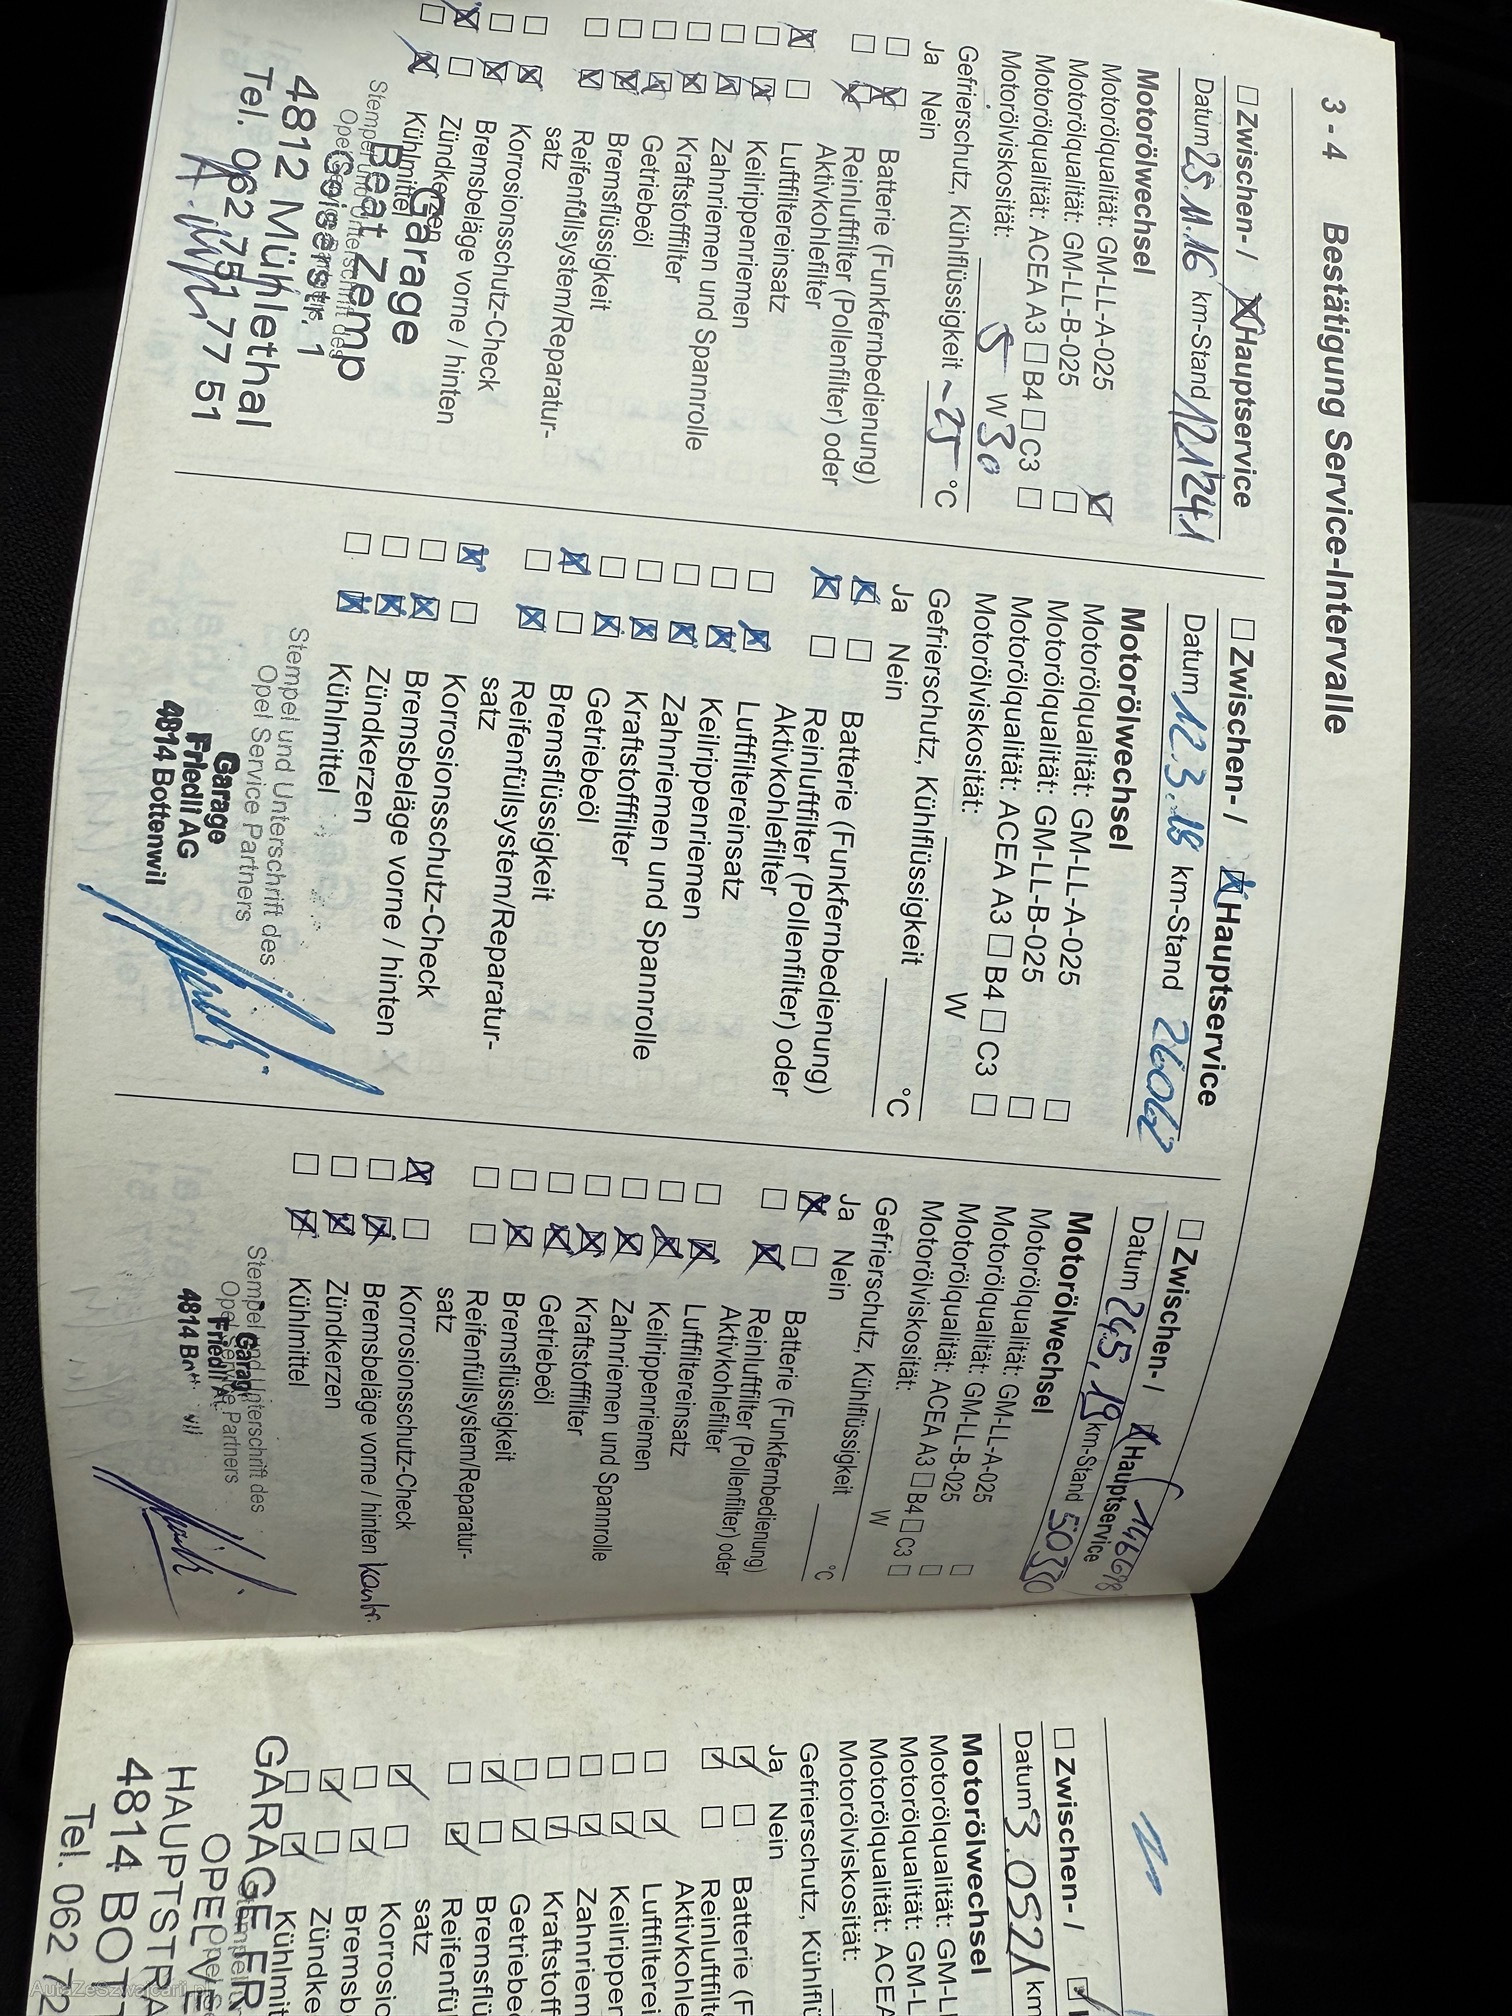 3 - 4 Bestätigung Service-Intervalle
Zwischen- / Hauptservice
Datum 25.11.16 km-Stand 121'241
Motorölwechsel
Motorölqualität: GM-LL-A-025
Motorölqualität: GM-LL-B-025
Motorölqualität: ACEA A3 B4 C3
Motorölviskosität: 5 W 30
Gefrierschutz, Kühlflüssigkeit -25 °C
Ja Nein
Batterie (Funkfernbedienung)
Reinluftfilter (Pollenfilter) oder
Aktivkohlefilter
Luftfiltereinsatz
Keilrippenriemen
Zahnriemen und Spannrolle
Kraftstofffilter
Getriebeöl
Bremsflüssigkeit
Reifenfüllsystem/Reparatur-
satz
Korrosionsschutz-Check
Bremsbeläge vorne / hinten
Zündkerzen
Kühlmittel
Stempel und Unterschrift des
Garage
Beat Zemp
4812 Mühlethal
Tel. 062 751 77 51
Zwischen- / Hauptservice
Datum 12.3.18 km-Stand
Motorölwechsel
Motorölqualität: GM-LL-A-025
Motorölqualität: GM-LL-B-025
Motorölqualität: ACEA A3 B4 C3
Motorölviskosität: W
Gefrierschutz, Kühlflüssigkeit °C
Ja Nein
Batterie (Funkfernbedienung)
Reinluftfilter (Pollenfilter) oder
Aktivkohlefilter
Luftfiltereinsatz
Keilrippenriemen
Zahnriemen und Spannrolle
Kraftstofffilter
Getriebeöl
Bremsflüssigkeit
Reifenfüllsystem/Reparatur-
satz
Korrosionsschutz-Check
Bremsbeläge vorne / hinten
Zündkerzen
Kühlmittel
Stempel und Unterschrift des
Opel Service Partners
Garage
Friedli AG
4814 Bottenwil
146698
Zwischen- / Hauptservice
Datum 24.5.19 km-Stand 50330
Motorölwechsel
Motorölqualität: GM-LL-A-025
Motorölqualität: GM-LL-B-025
Motorölqualität: ACEA A3 B4 C3
Motorölviskosität: W
Gefrierschutz, Kühlflüssigkeit °C
Ja Nein
Batterie (Funkfernbedienung)
Reinluftfilter (Pollenfilter) oder
Aktivkohlefilter
Luftfiltereinsatz
Keilrippenriemen
Zahnriemen und Spannrolle
Kraftstofffilter
Getriebeöl
Bremsflüssigkeit
Reifenfüllsystem/Reparatur-
satz
Korrosionsschutz-Check
Bremsbeläge vorne / hinten Kontr.
Zündkerzen
Kühlmittel
Stempel und Unterschrift des
Opel Service Partners
Garag
Friedli A
4814 B
Zwischen- /
Datum 3.0521 km
Motorölwechsel
Motorölqualität: GM-L
Motorölqualität: GM-L
Motorölqualität: ACEA
Motorölviskosität:
Gefrierschutz, Kühlflü
Ja Nein
Batterie (F
Reinluftfilt
Aktivkohle
Luftfilterei
Keilrippen
Zahnriem
Kraftstoff
Getriebe
Bremsflü
Reifenfü
satz
Korrosio
Bremsb
Zündke
Kühlmit
GARAGE FR
OPEL VE
HAUPTSTRA
4814 BOT
Tel. 062 72
AutaZeSzwajcarii.pl